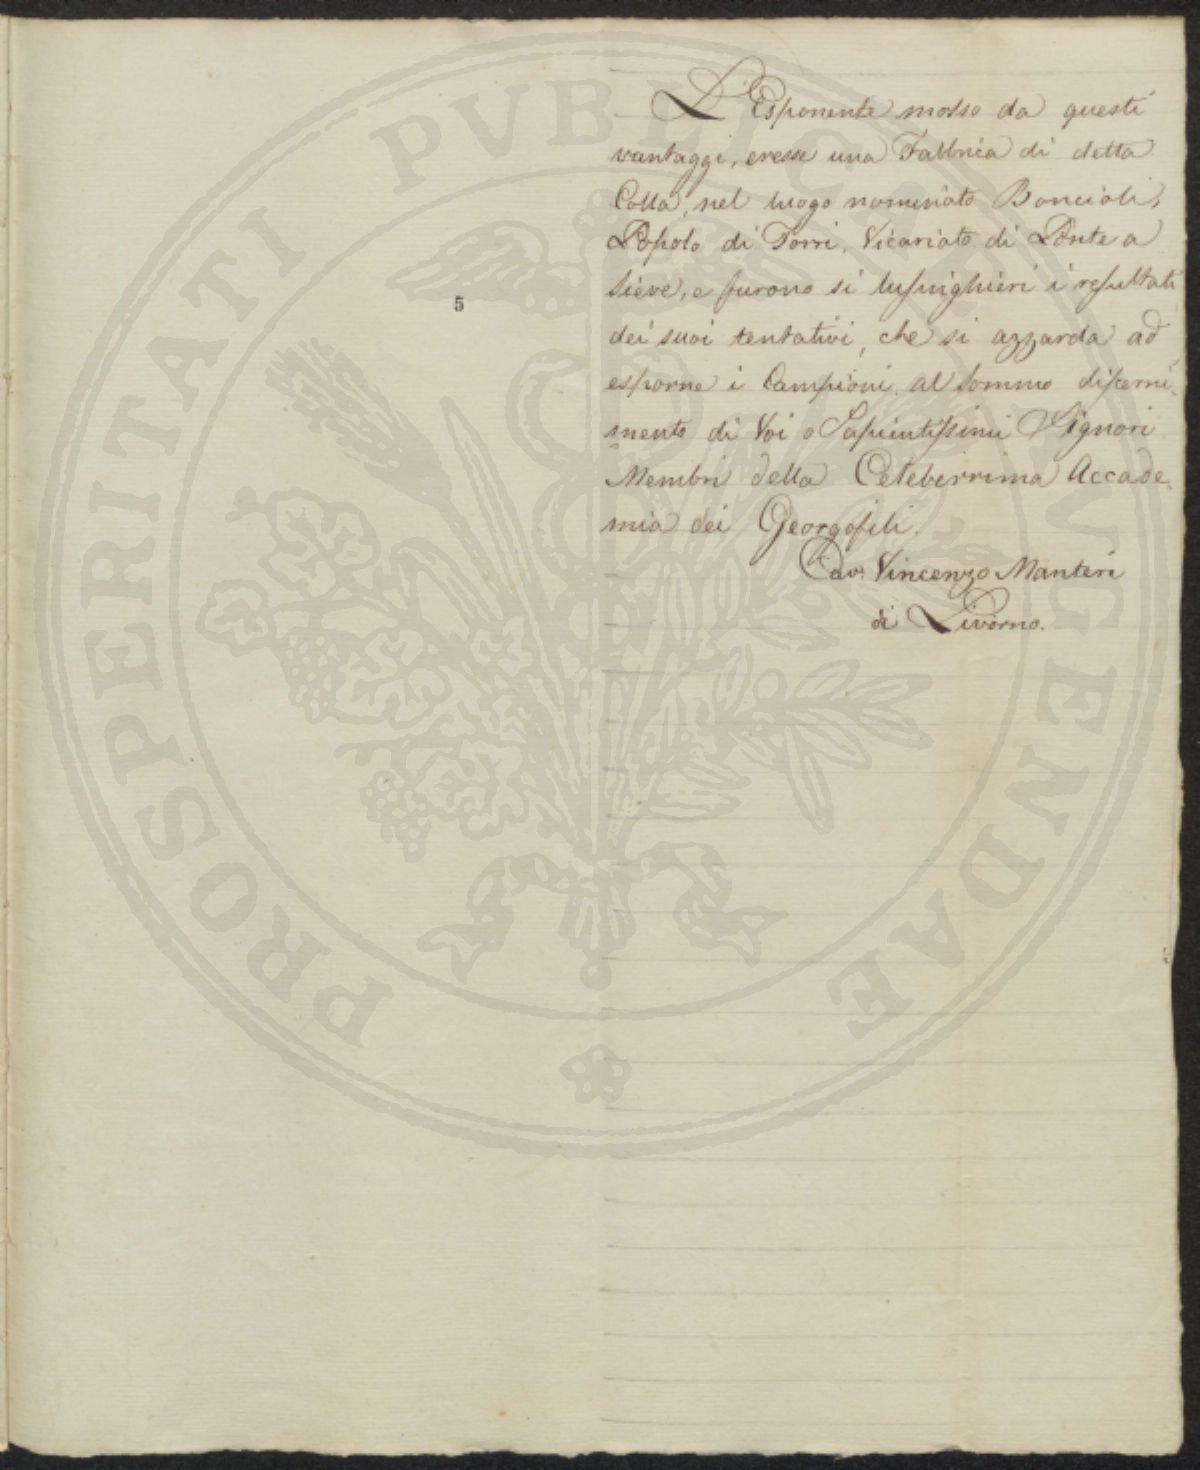 L'Esponente mosso da questi
vantaggi, eresse una Fabbrica di detta
Colla, nel luogo nominato Boncioli,
Popolo di Torri, Vicariato di Ponte a
Sieve, e furono si lusinghieri i resultati
dei suoi tentativi, che si azzarda ad
esporne i Campioni al sommo discerni-
mento di Voi o Sapientissimi Signori
Membri della Celeberrima Accade-
mia dei Georgofili.
Cav. Vincenzo Manteri
di Livorno.
5
PROSPERITATI PVBLICAE AVGENDAE